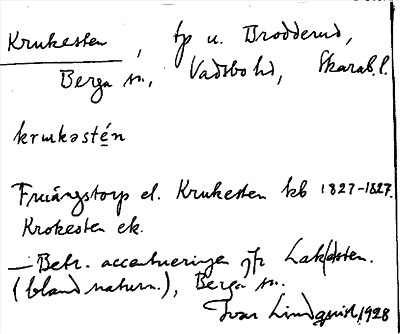 Krukesten, tp u. Brodderud,
Berga sn., Vadsbo hd, Skarab. l.
krukəstén
Fruängstorp el. Krukesten kb 1827-1827.
Krokesten ek.
— Betr. accentueringen jfr Lak/åsten.
(bland naturn.), Berga sn.
Ivar Lindquist, 1928